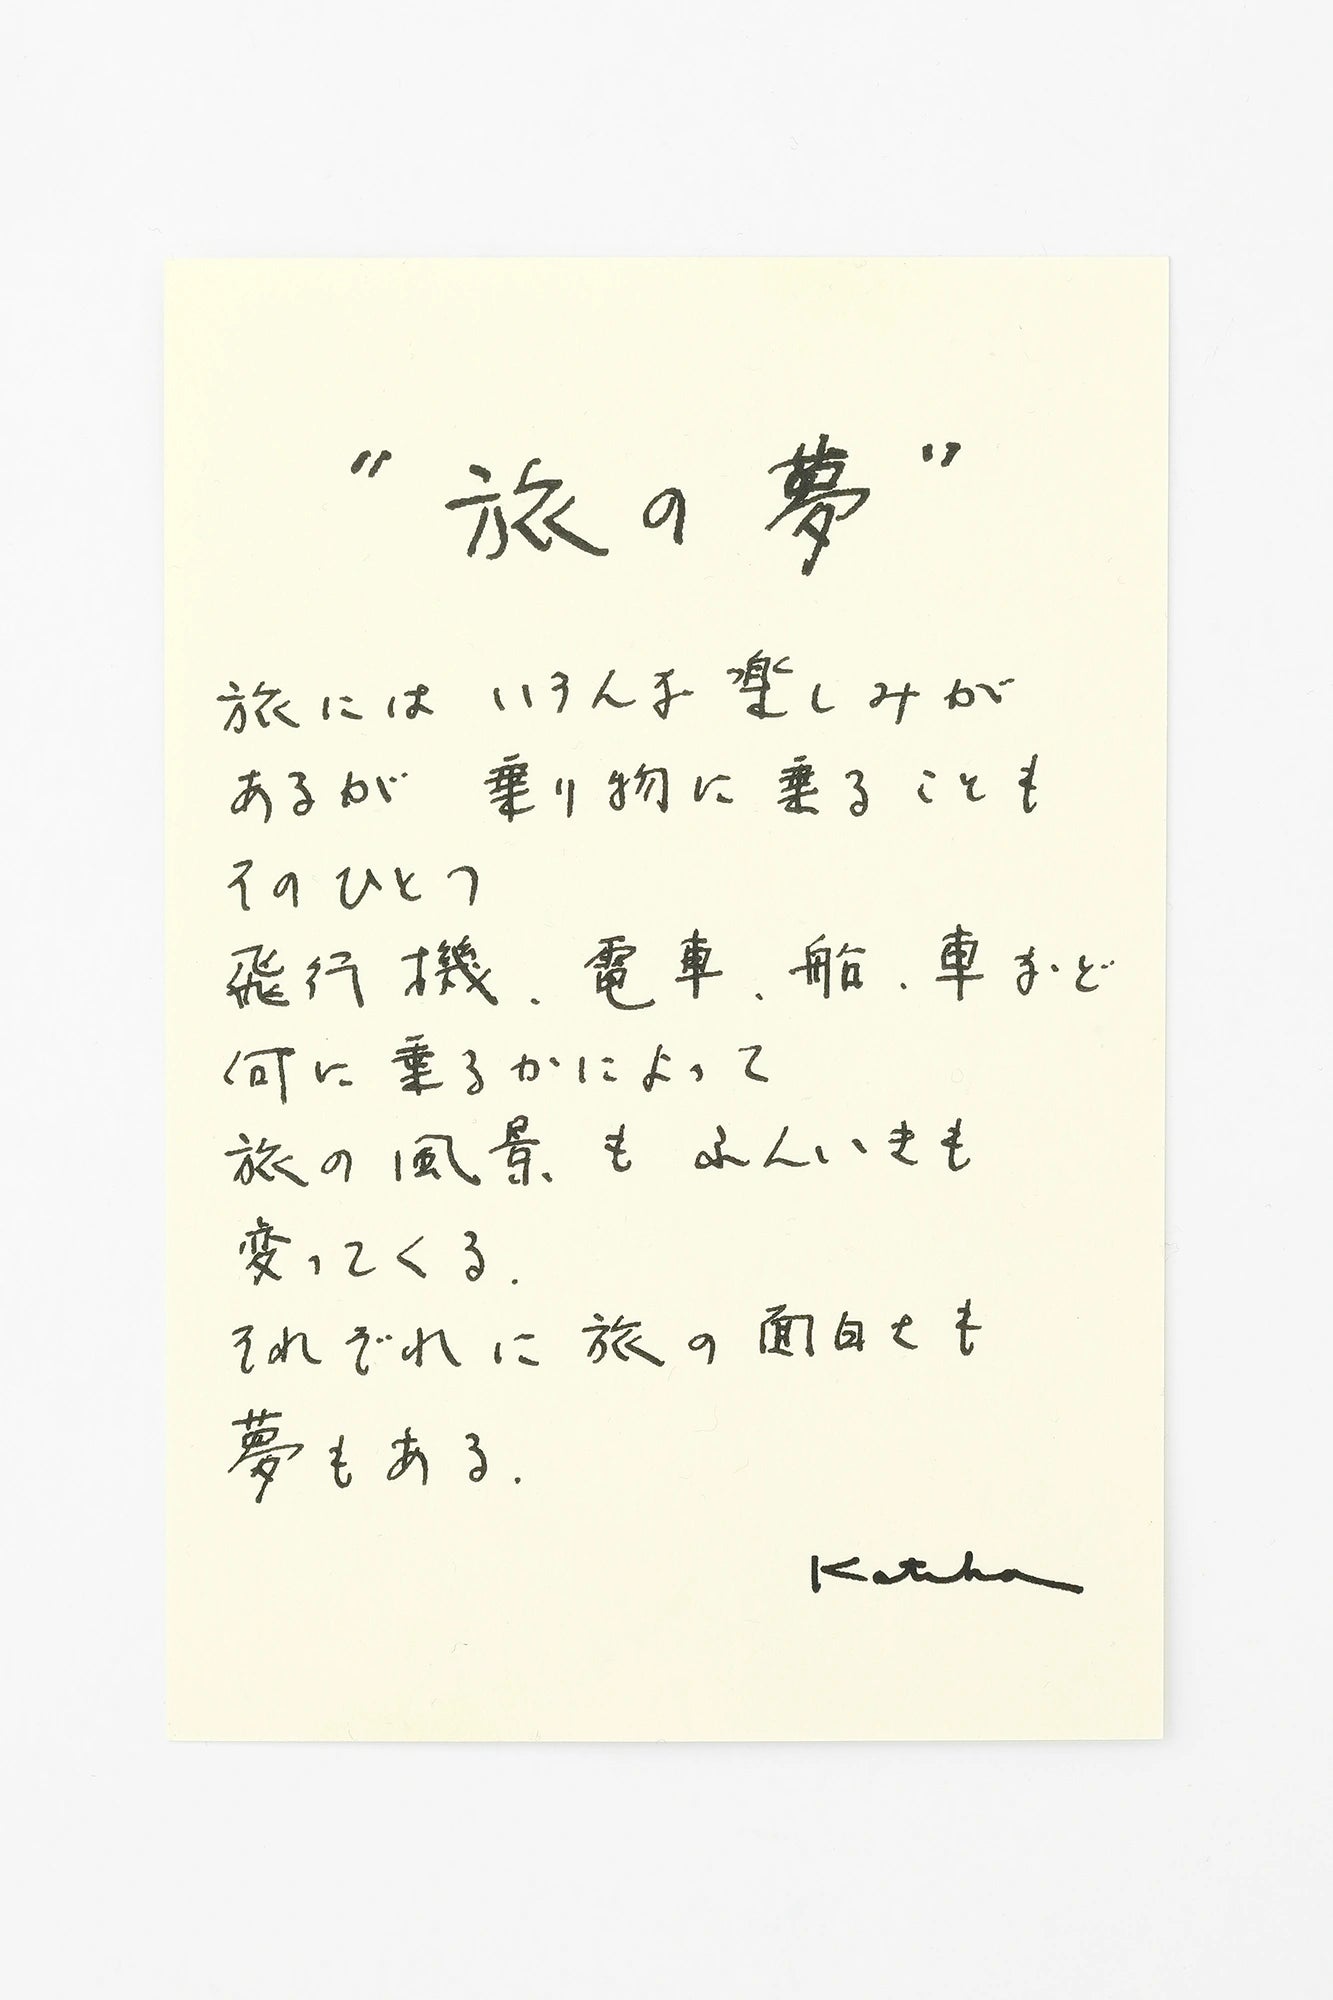 "旅の夢"
旅には いろんな 楽しみが
あるが 乗り物に 乗ることも
そのひとつ
飛行機、電車、船、車など
何に乗るかによって
旅の風景も ふんいきも
変ってくる.
それぞれに 旅の面白さも
夢もある.